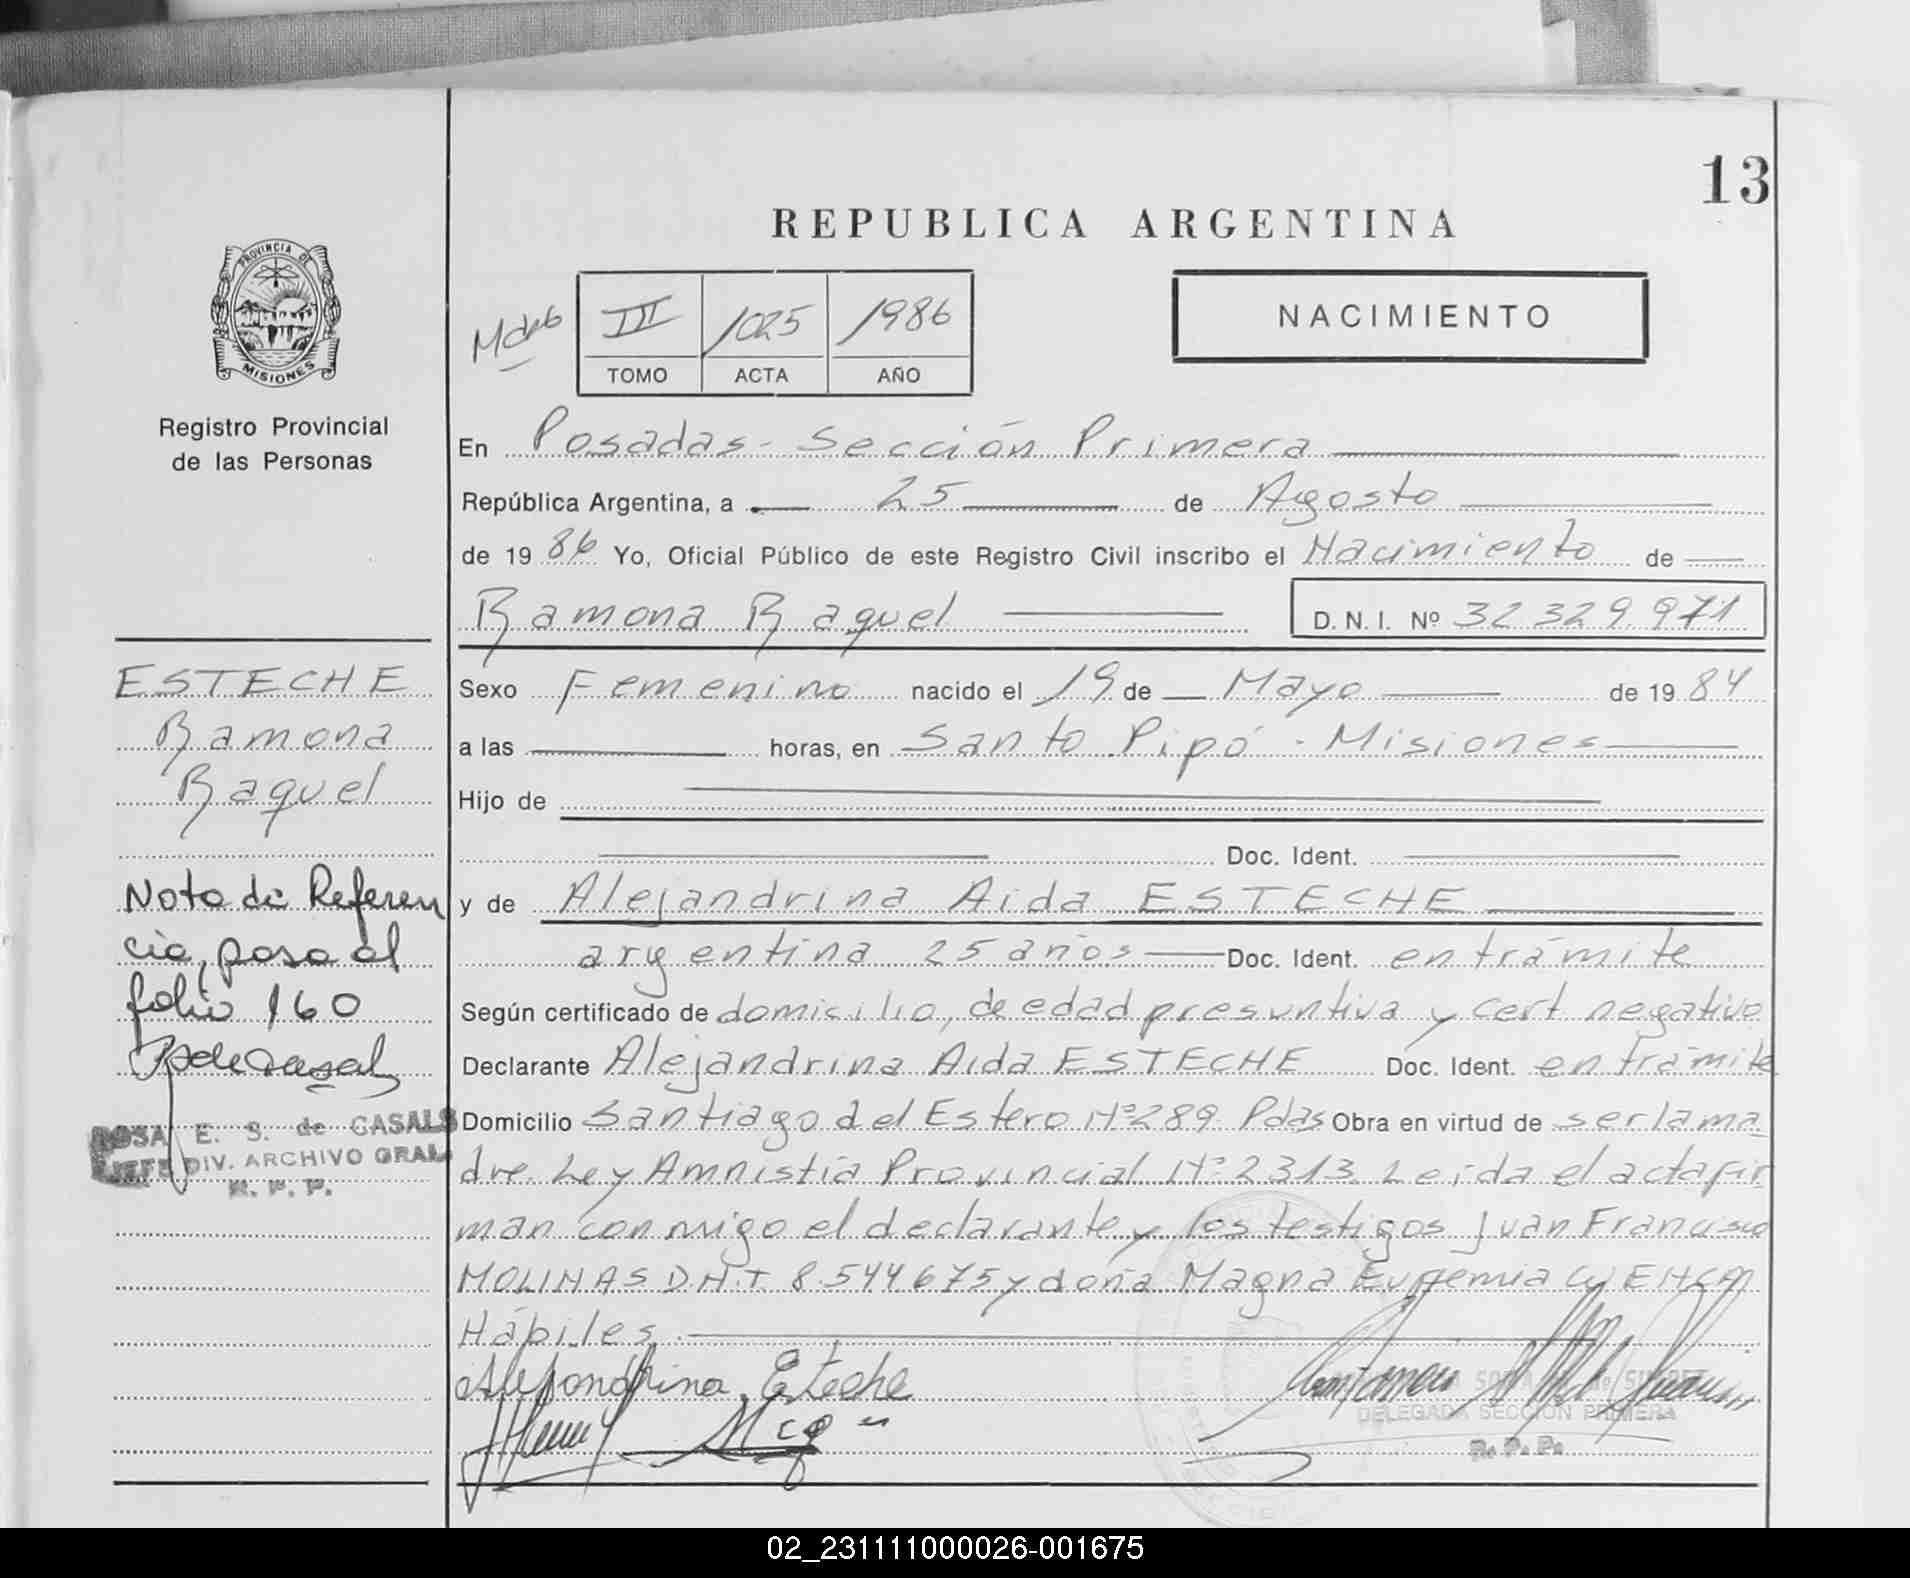 13
REPUBLICA ARGENTINA
PROVINCIA DE
MISIONES
III 1025 1986
TOMO ACTA AÑO
NACIMIENTO
Registro Provincial
de las Personas
En Posadas - Sección Primera
República Argentina, a 25 de Agosto
de 1986 Yo, Oficial Público de este Registro Civil inscribo el Nacimiento de
Ramona Raquel D. N. I. Nº 32 329 971
ESTECHE
Ramona
Raquel
Sexo Femenino nacido el 19 de Mayo de 1984
a las horas, en Santo Pipó - Misiones
Hijo de
Doc. Ident.
Nota de Referen
cia, pasa al
folio 160
ROSA E. S. de CASALS
JEFE DIV. ARCHIVO GRAL.
R. P. P.
y de Alejandrina Aida ESTECHE
argentina 25 años Doc. Ident. en trámite
Según certificado de domicilio, de edad presuntiva y cert negativo
Declarante Alejandrina Aida ESTECHE Doc. Ident. en trámite
Domicilio Santiago del Estero Nº 289 Pdas Obra en virtud de ser la ma
dre. Ley Amnistía Provincial Nº 2313 Leida el acta fir
man conmigo el declarante y los testigos Juan Francisco
MOLINAS D.N.I. 8.544.675 y doña Magna
Hábiles
Alejandrina Esteche
DELEGADA SECCION PRIMERA
R. P. P.
02_231111000026-001675